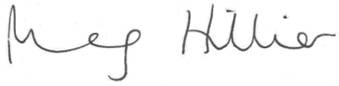 Meg Hillier